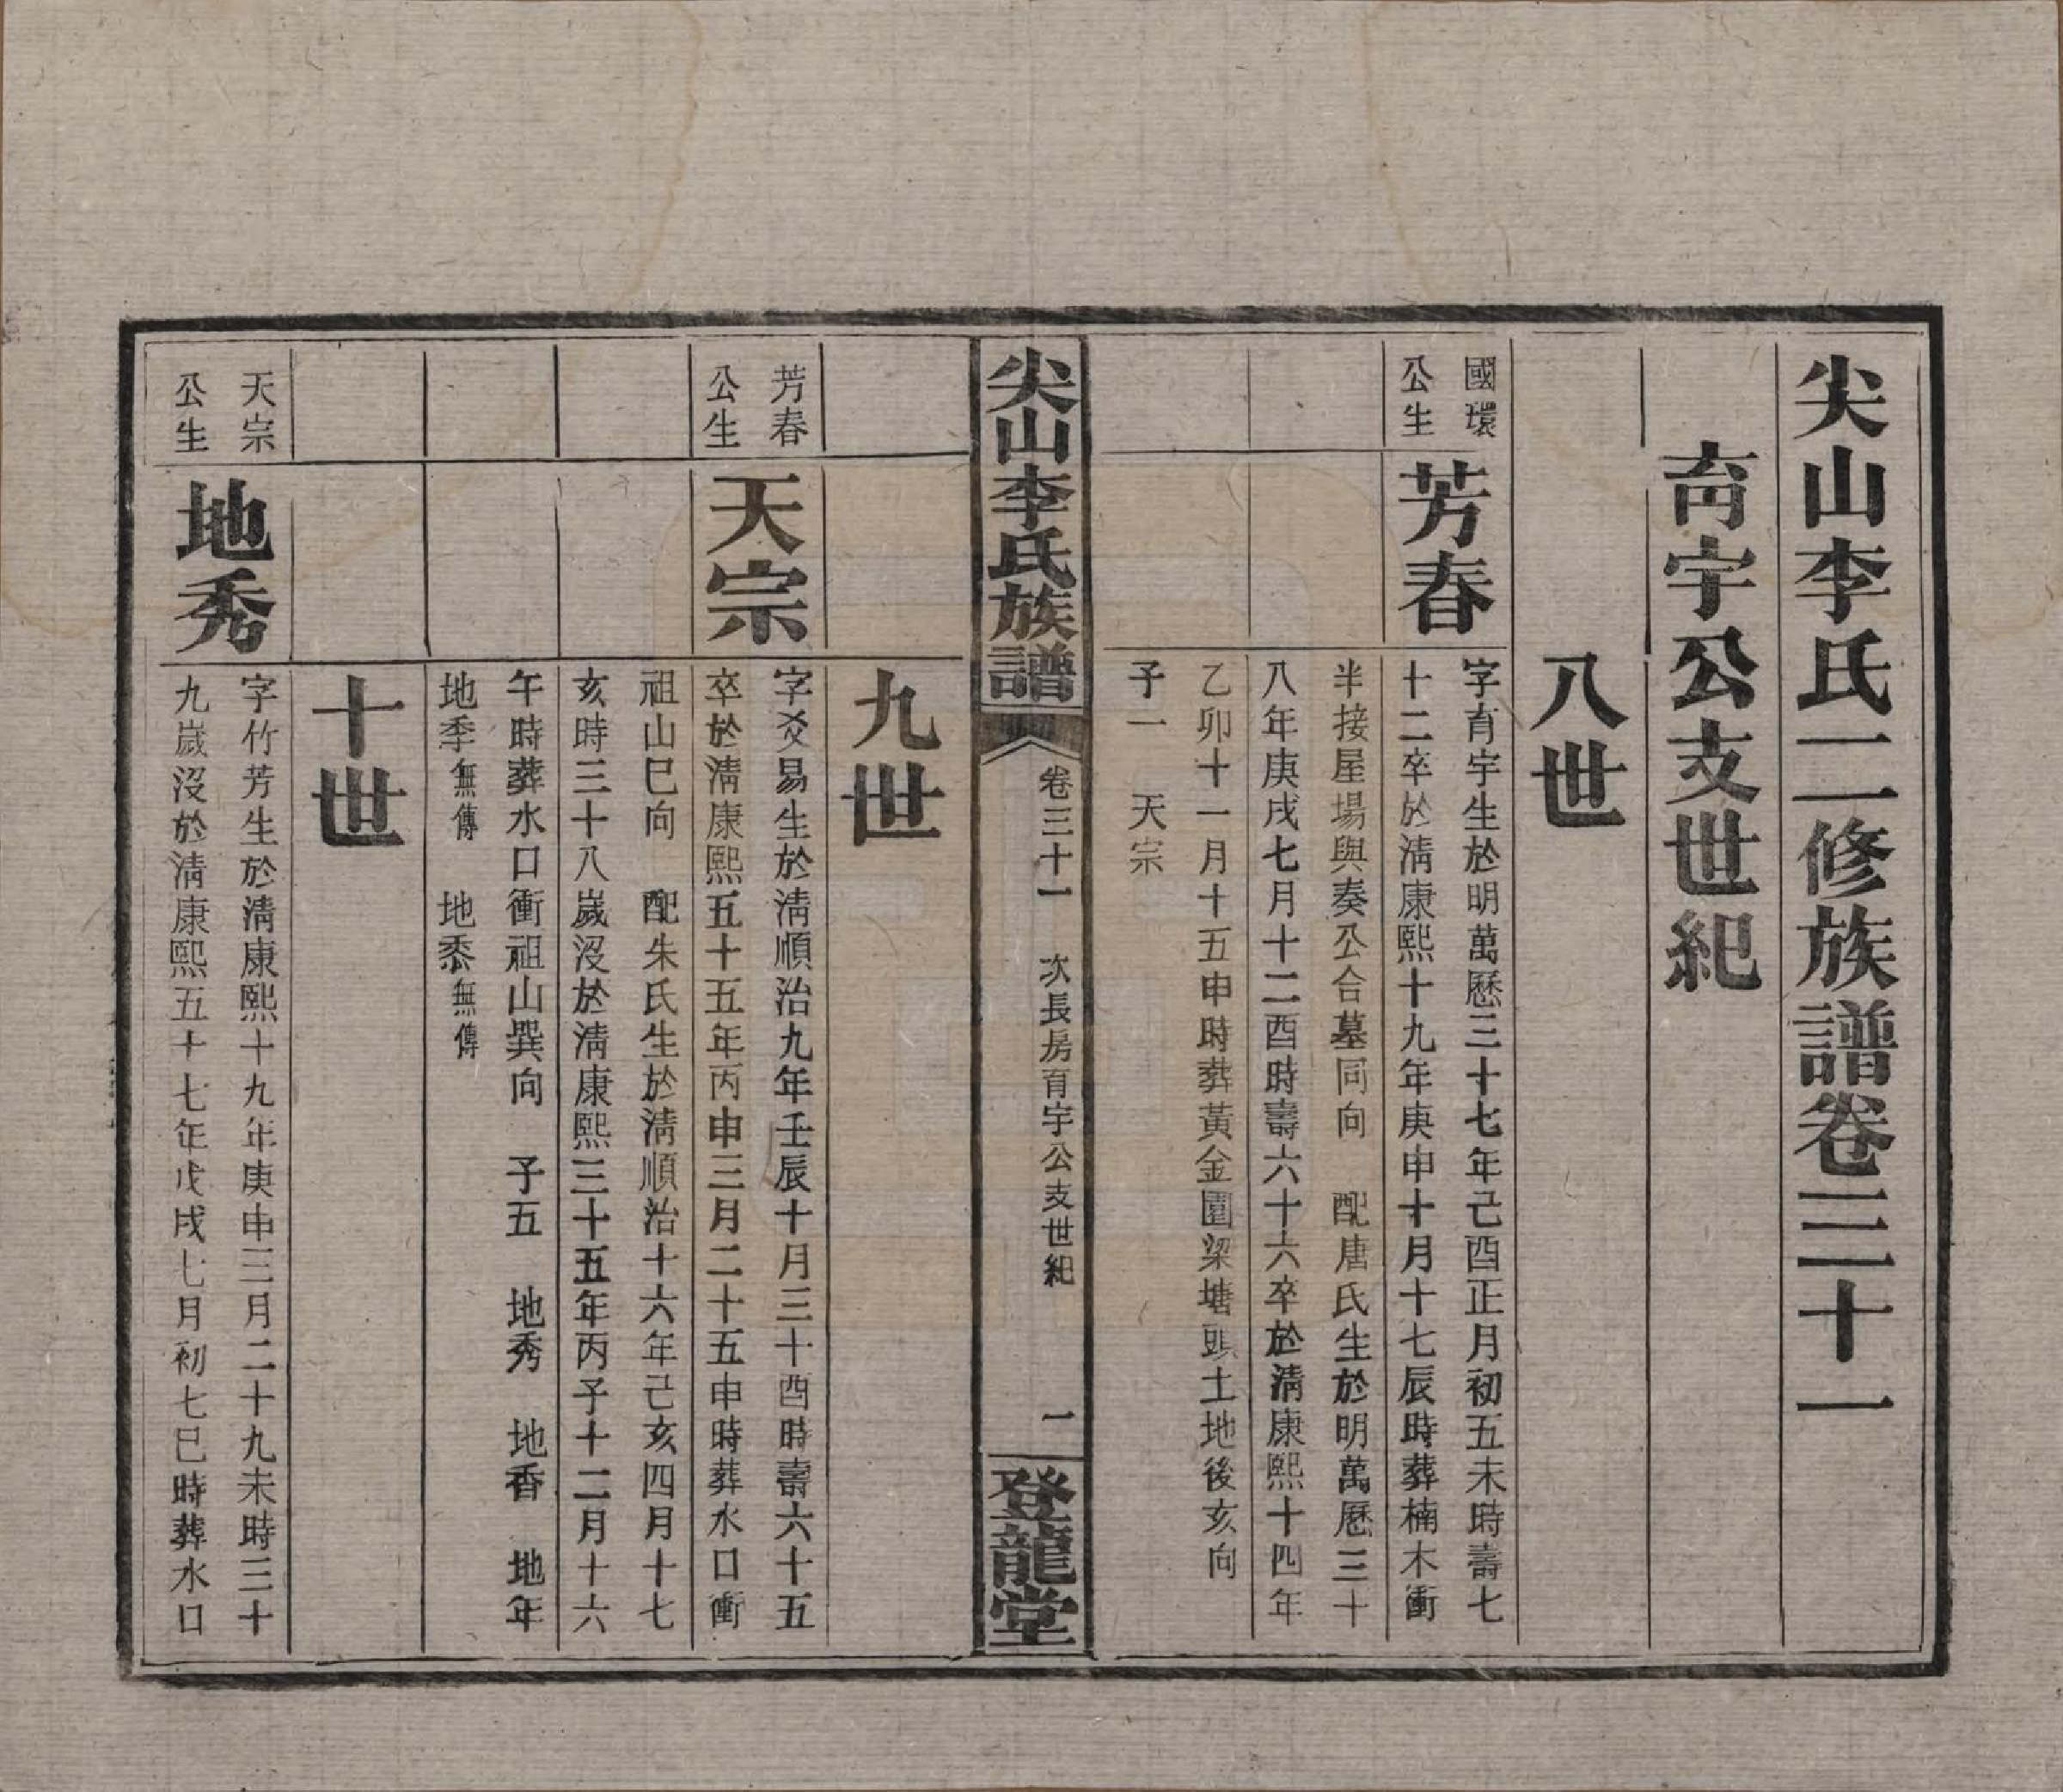 尖山李氏二修族譜卷三十一
育宇公支世紀
八世
國環
公生
芳春
字育宇生於明萬曆三十七年己酉正月初五未時壽七
十二卒於清康熙十九年庚申十月十七辰時葬楠木衝
半接屋場與奏公合墓同向　配唐氏生於明萬曆三十
八年庚戌七月十二酉時壽六十六卒於清康熙十四年
乙卯十一月十五申時葬黃金園梁塘頭土地後亥向
子一　天宗
尖山李氏族譜
卷三十一　次長房育宇公支世紀　一
登龍堂
九世
芳春
公生
天宗
字爻易生於清順治九年壬辰十月三十酉時壽六十五
卒於清康熙五十五年丙申三月二十五申時葬水口衝
祖山巳向　配朱氏生於清順治十六年己亥四月十七
亥時三十八歲沒於清康熙三十五年丙子十二月十六
午時葬水口衝祖山巽向　子五　地秀　地香　地年
地季無傳　地黍無傳
十世
天宗
公生
地秀
字竹芳生於清康熙十九年庚申三月二十九未時三十
九歲沒於清康熙五十七年戊戌七月初七巳時葬水口